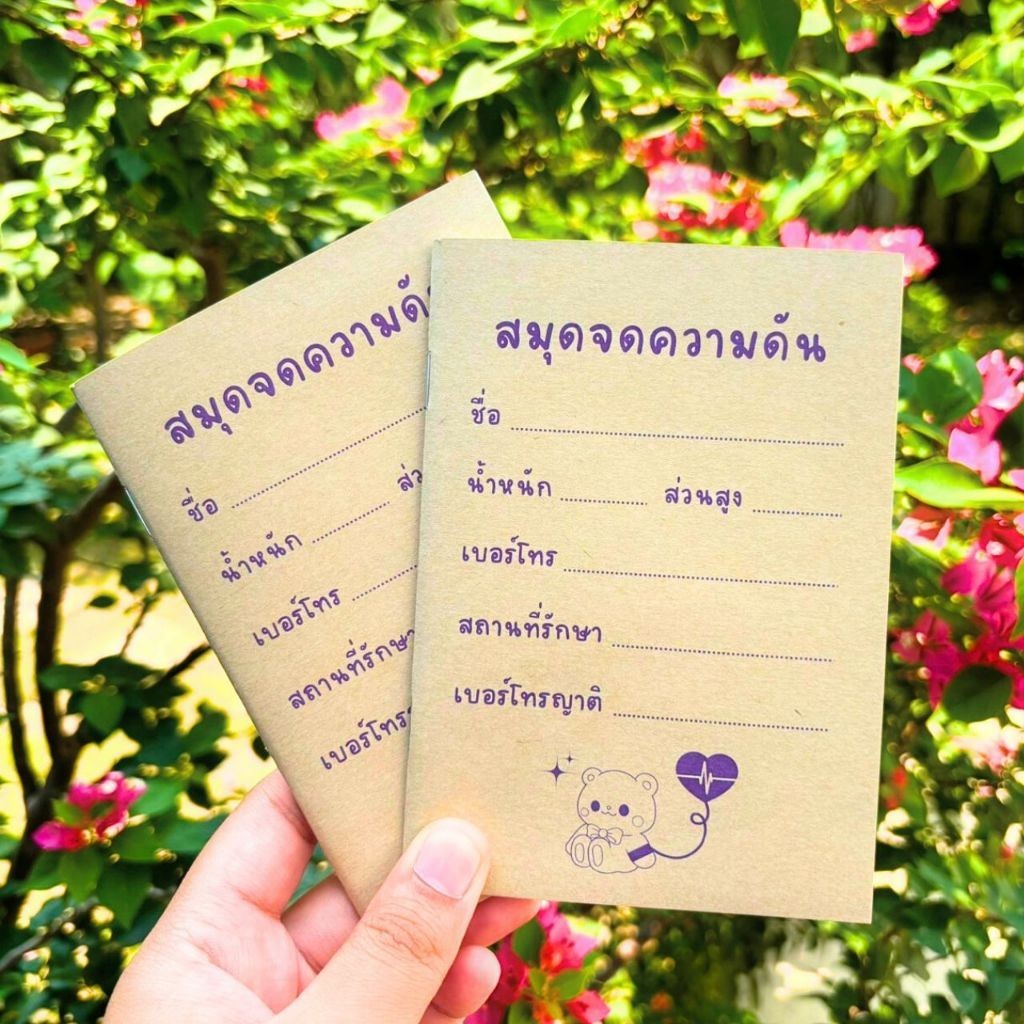 สมุดจดความ
ชื่อ
น้ำหนัก
เบอร์โทร
สถานที่รักษา
สมุดจดความดัน
ชื่อ
น้ำหนัก ส่วนสูง
เบอร์โทร
สถานที่รักษา
เบอร์โทรญาติ